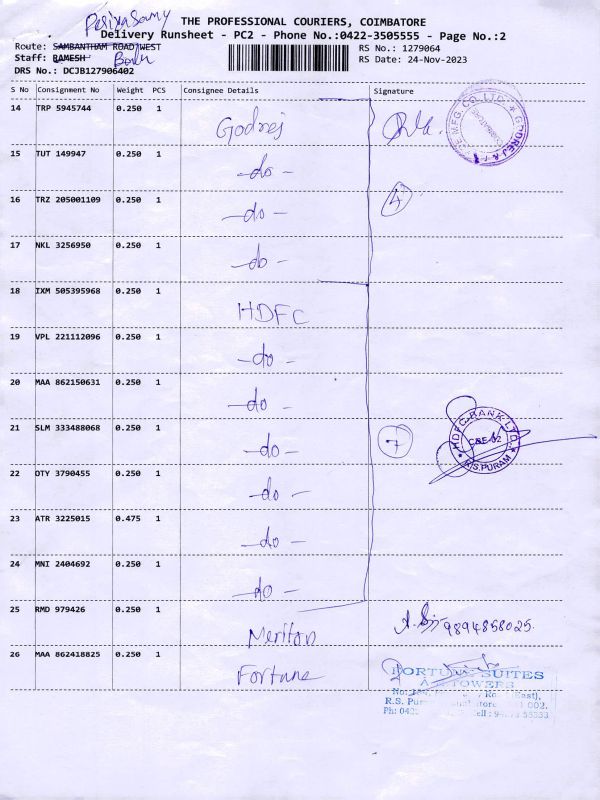 Periyasamy
THE PROFESSIONAL COURIERS, COIMBATORE
Delivery Runsheet - PC2 - Phone No.:0422-3505555 - Page No.:2
Route: SAMBANTHAM ROAD WEST
RS No.: 1279064
Staff: RAMESH
RS Date: 24-Nov-2023
DRS No.: DCJB127906402
S No Consignment No Weight PCS Consignee Details Signature
14 TRP 5945744 0.250 1 Godrej
15 TUT 149947 0.250 1 -do-
16 TRZ 205001109 0.250 1 -do- 4
17 NKL 3256950 0.250 1 -do-
18 IXM 505395968 0.250 1 HDFC
19 VPL 221112096 0.250 1 -do-
20 MAA 862150631 0.250 1 -do-
21 SLM 333488068 0.250 1 -do- 7
HDFC BANK LTD.
R.S. PURAM
22 OTY 3790455 0.250 1 -do-
23 ATR 3225015 0.475 1 -do-
24 MNI 2404692 0.250 1 -do-
25 RMD 979426 0.250 1 Meriton 9894858025
26 MAA 862418825 0.250 1 Fortune
FORTUNE SUITES
TOWERS
(East),
R.S. 002.
Ph: Cell: